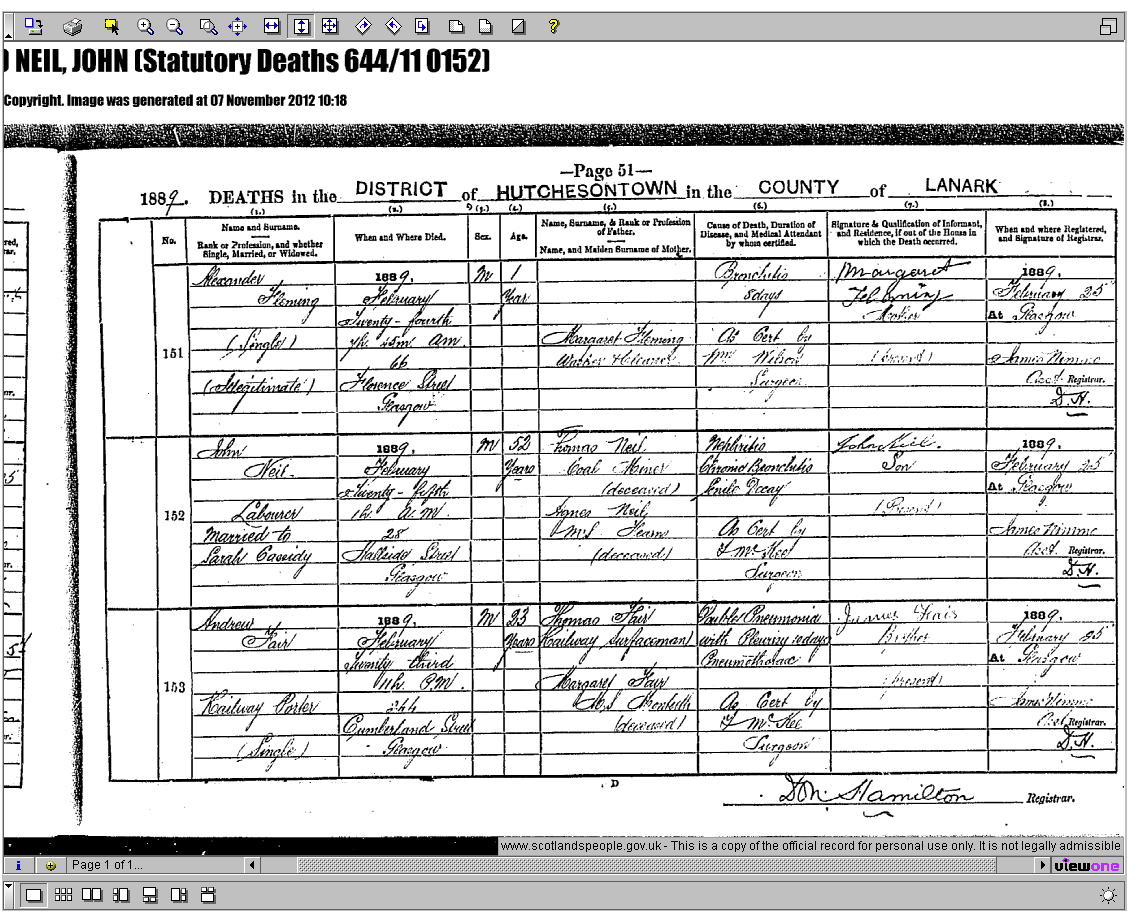 NEIL, JOHN (Statutory Deaths 644/11 0152)
Copyright. Image was generated at 07 November 2012 10:18
—Page 51—
1889. DEATHS in the DISTRICT of HUTCHESONTOWN in the COUNTY of LANARK
(1.) (2.) (3.) (4.) (5.) (6.) (7.) (8.)
No.
Name and Surname.
Rank or Profession, and whether Single, Married, or Widowed.
When and Where Died.
Sex.
Age.
Name, Surname, & Rank or Profession of Father.
Name, and Maiden Surname of Mother.
Cause of Death, Duration of Disease, and Medical Attendant by whom certified.
Signature & Qualification of Informant, and Residence, if out of the House in which the Death occurred.
When and where Registered, and Signature of Registrar.
151
Alexander
Fleming
(Single)
(Illegitimate)
1889.
February
Twenty-fourth
7h. 45m. am
66
Florence Street
Glasgow
M
1
Year
Margaret Fleming
Bronchitis
8 days
As Cert by
Wm Wilson
Surgeon
Margaret
Fleming
Mother
(Present)
1889.
February 25
At Glasgow
James Nimmo
Asst. Registrar.
D.H.
152
John
Neil
Labourer
Married to
Sarah Cassidy
1889.
February
Twenty-fifth
1h. A.M.
28
Street
Glasgow
M
52
Years
Thomas Neil
Coal Miner
(deceased)
Agnes Neil
M.S.
(deceased)
Nephritis
Chronic Bronchitis
Senile Decay
As Cert by
J McKee
Surgeon
John Neil.
Son
(Present)
1889.
February 25
At Glasgow
James Nimmo
Asst. Registrar.
D.H.
153
Andrew
Fair
Railway Porter
(Single)
1889.
February
Twenty third
11h. P.M.
244
Cumberland Street
Glasgow
M
23
Years
Thomas Fair
Railway Surfaceman
Margaret Fair
M.S. Monteith
(deceased)
Double Pneumonia
with Pleurisy
Pneumothorax
As Cert by
J McKee
Surgeon
James Fair
Brother
(Present)
1889.
February 25
At Glasgow
James Nimmo
Asst. Registrar.
D.H.
D
Hamilton Registrar.
www.scotlandspeople.gov.uk - This is a copy of the official record for personal use only. It is not legally admissible
Page 1 of 1...
viewone